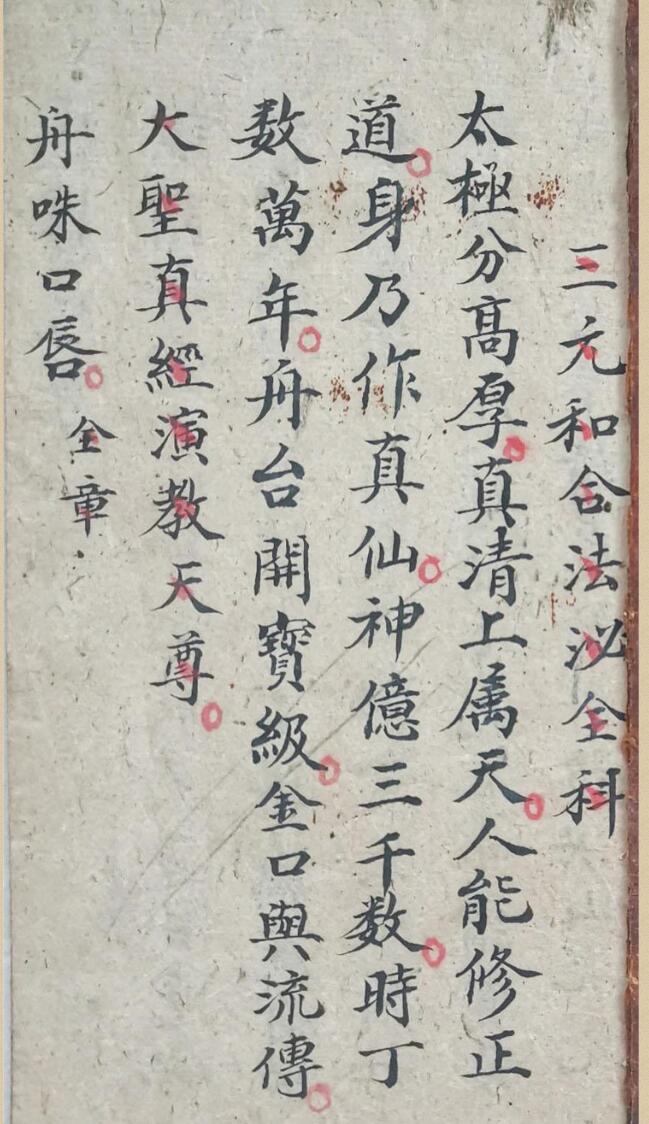 三元和合法泌全科
太極分高厚真清上属天人能修正
道身乃作真仙神億三千数時丁
数萬年舟台開寳級金口與流傳
大聖真經演教天尊
舟咮口唇全章